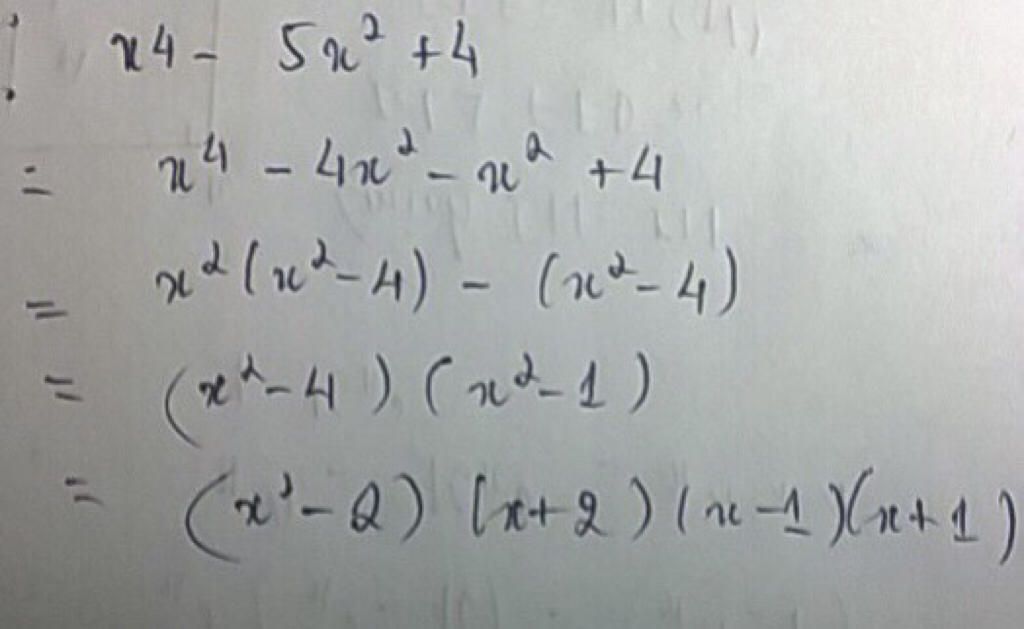 x4 - 5x² + 4
= x⁴ - 4x² - x² + 4
= x²(x² - 4) - (x² - 4)
= (x² - 4)(x² - 1)
= (x² - 2)(x + 2)(x - 1)(x + 1)